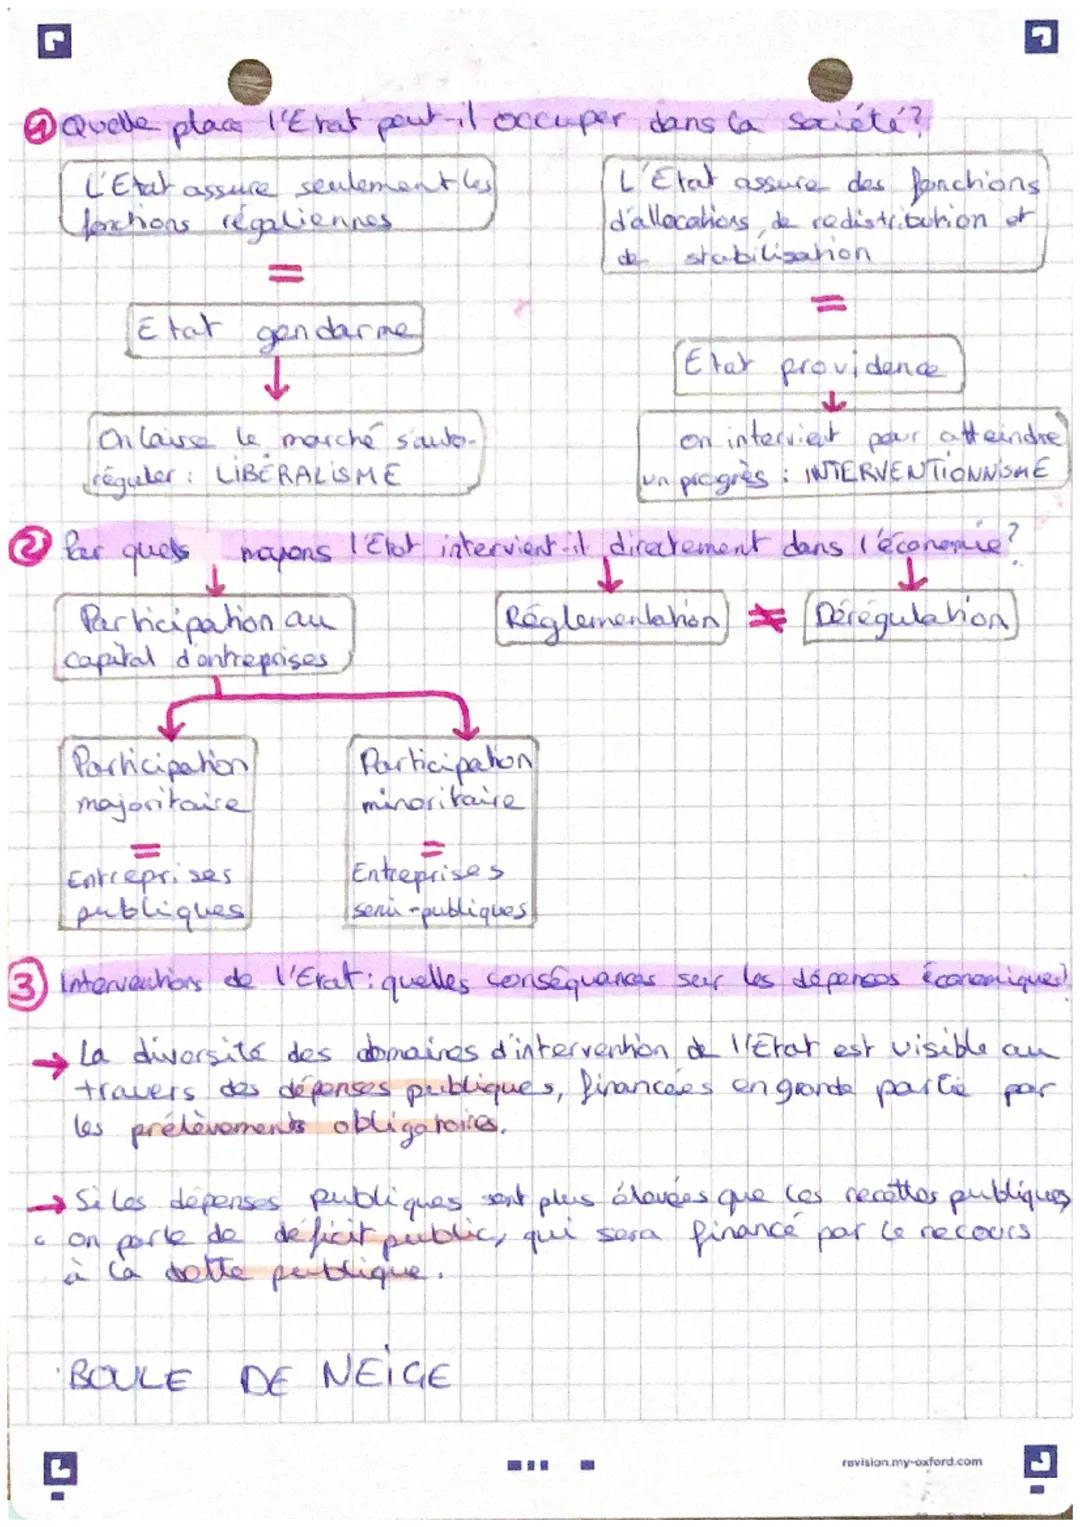 ① Quelle place l'Etat peut-il occuper dans la société?
L'Etat assure seulement les
fonctions régaliennes
=
Etat gendarme
On laisse le marché s'auto-
réguler : LIBÉRALISME
L'Etat assure des fonctions
d'allocations, de redistribution et
de stabilisation
=
Etat providence
on intervient pour atteindre
un progrès : INTERVENTIONNISME
② Par quels moyens l'Etat intervient-il directement dans l'économie?
Participation au
capital d'entreprises
Réglementation ≠ Dérégulation
Participation
majoritaire
=
Entreprises
publiques
Participation
minoritaire
=
Entreprises
semi-publiques
③ Interventions de l'Etat : quelles conséquences sur les dépenses économiques?
→ La diversité des domaines d'intervention de l'Etat est visible au
travers des dépenses publiques, financées en grande partie par
les prélèvements obligatoires.
→ Si les dépenses publiques sont plus élevées que les recettes publiques
on parle de déficit public, qui sera financé par le recours
à la dette publique.
BOULE DE NEIGE
revision.my-oxford.com